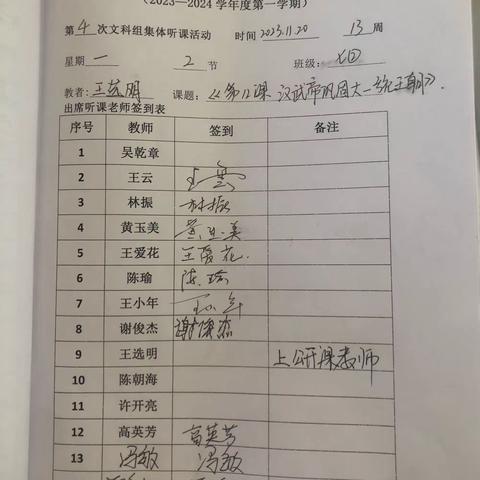 (2023—2024 学年度第一学期)
第 4 次文科组集体听课活动 时间 2023.11.20 13 周
星期 一 2 节 班级: 七(1)
教者: 王选明 课题: 《第12课 汉武帝巩固大一统王朝》.
出席听课老师签到表
序号 教师 签到 备注
1 吴乾章
2 王云 王云
3 林振 林振
4 黄玉美 黄玉美
5 王爱花 王爱花
6 陈瑜 陈瑜
7 王小年 王小年
8 谢俊杰 谢俊杰
9 王选明 上公开课教师
10 陈朝海
11 许开亮
12 高英芳 高英芳
13 冯敏 冯敏